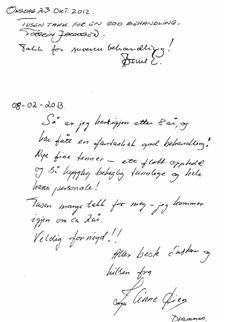 ONSDAG 23. OKT. 2012.
TUSEN TAKK FOR EN GOD BEHANDLING.
Takk for suveren behandling!
08-02-2013.
Så er jeg her igjen etter 8 år, og
har fått en fantastisk god behandling!
Nye fine tenner - ett flott opphold
og så hyggelig behagelig tannlege og hele
hans personale!
Tusen mange takk for meg - jeg kommer
igjen om ca 2 år.
Veldig fornøyd!!
Aller besk ønsker og
hilsen fra
Anne
Drammen.